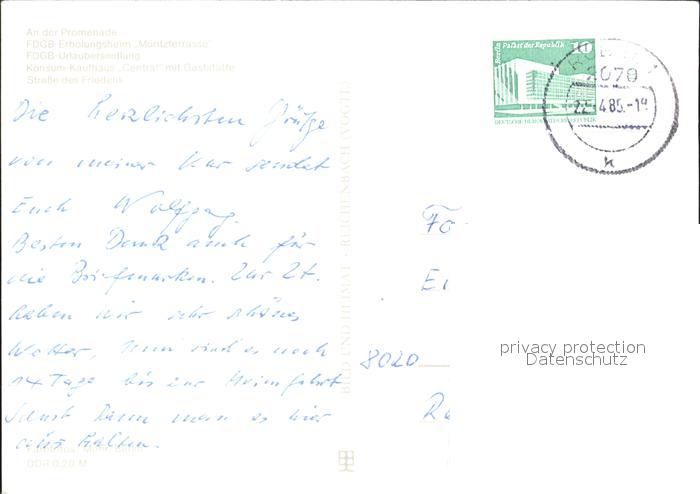 An der Promenade
FDGB-Erholungsheim „Müritzterrasse"
FDGB-Urlaubersiedlung
Konsum-Kaufhaus „Central" mit Gaststätte
Straße des Friedens
Die herzlichsten Grüße
von meiner Kur sendet
Euch Wolfgang.
Besten Dank auch für
die Briefmarken. Zur Zt.
haben wir sehr schönes
Wetter, nun sind es noch
14 Tage bis zur Heimfahrt
Sonst kann man es hier
aushalten.
DDR 0,20 M
BILD UND HEIMAT · REICHENBACH (VOGTL
Berlin Palast der Republik 10
DEUTSCHE DEMOKRATISCHE REPUBLIK
2070
22.-4.85.-19
h
Fa
8020
privacy protection
Datenschutz